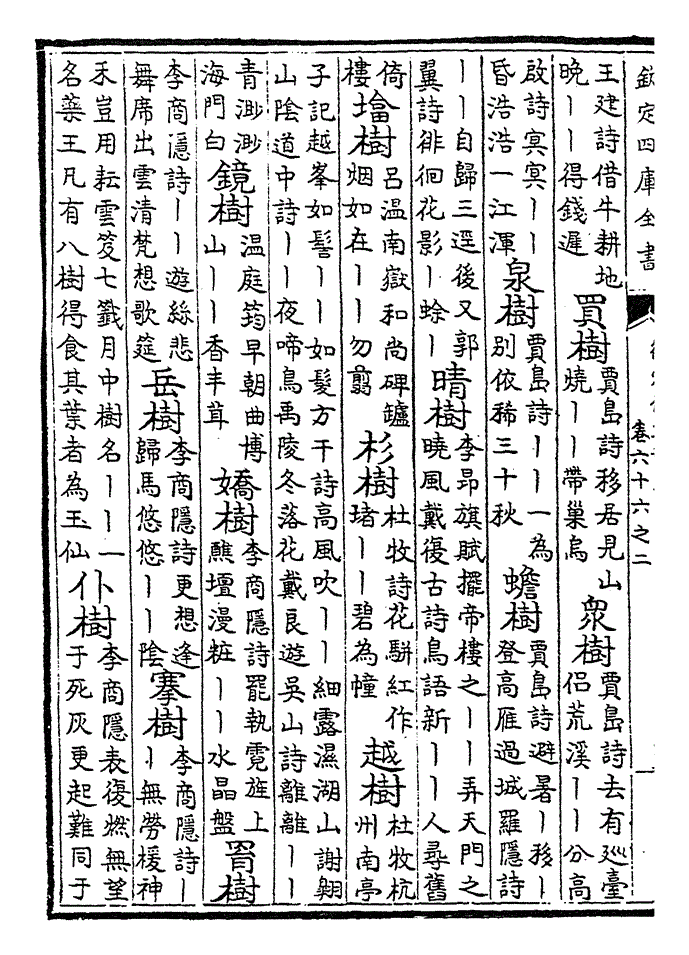 欽定四庫全書
卷六十六之二
王建詩借牛耕地
晚丨丨得錢遲
買樹
賈島詩移居見山
燒丨丨帶巢烏
衆樹
賈島詩去有巡臺
侶荒溪丨丨分高
啟詩冥冥丨丨
昏浩浩一江渾
泉樹
賈島詩丨丨一為
別依稀三十秋
蟾樹
賈島詩避暑丨移丨
登高雁過城羅隱詩
丨丨自歸三逕後又郭
翼詩徘徊花影丨蜍丨
晴樹
李昂旗賦擺帝樓之丨丨弄天門之
曉風戴復古詩鳥語新丨丨人尋舊
倚
樓
墖樹
呂溫南嶽和尚碑鑪
烟如在丨丨勿翦
杉樹
杜牧詩花駢紅作
堵丨丨碧為幢
越樹
杜牧杭
州南亭
子記越峯如髻丨丨如髮方干詩高風吹丨丨細露濕湖山謝翱
山陰道中詩丨丨夜啼鳥禹陵冬落花戴良遊吳山詩離離丨丨
青渺渺
海門白
鏡樹
溫庭筠早朝曲博
山丨丨香丰茸
嬌樹
李商隱詩罷執霓旌上
醮壇漫粧丨丨水晶盤
罥樹
李商隱詩丨丨遊絲悲
舞席出雲清梵想歌筵
岳樹
李商隱詩更想逢
歸馬悠悠丨丨陰
搴樹
李商隱詩丨
丨無勞援神
禾豈用耘雲笈七籤月中樹名丨丨一
名藥王凡有八樹得食其葉者為玉仙
仆樹
李商隱表復燃無望
于死灰更起難同于